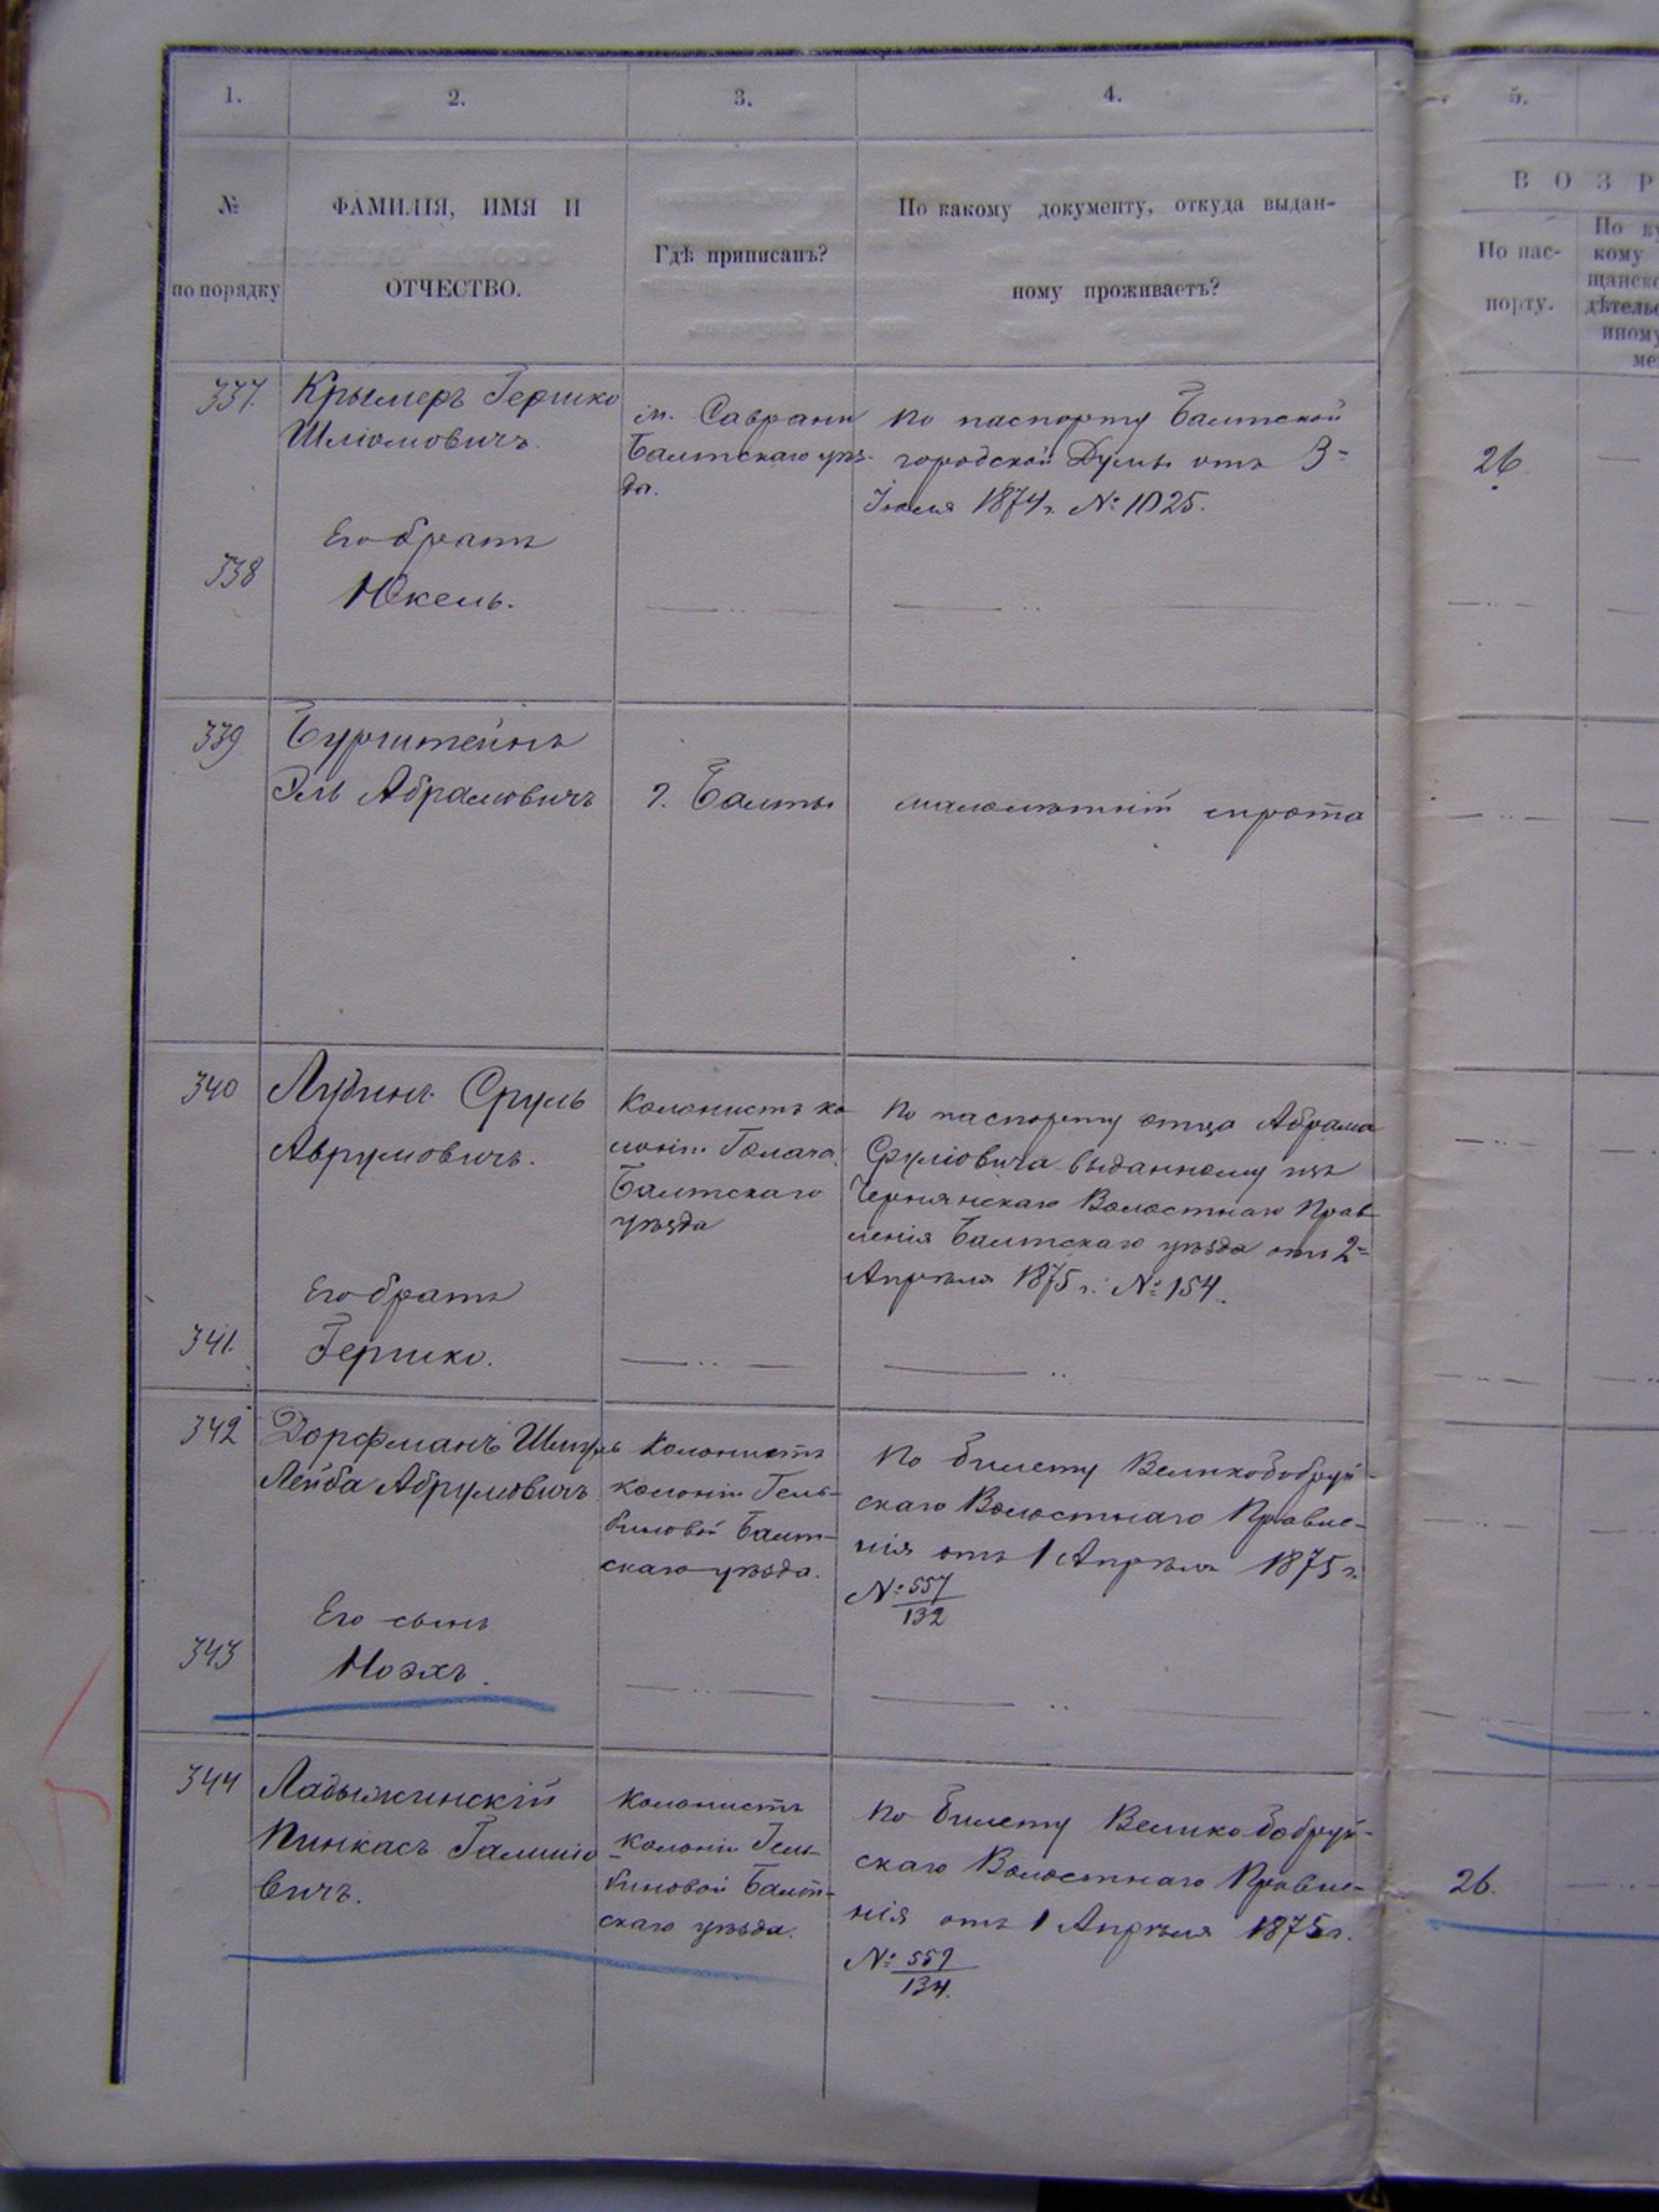 1.
2.
3.
4.
5.
№
по порядку
ФАМИЛІЯ, ИМЯ И
ОТЧЕСТВО.
Гдѣ приписанъ?
По какому документу, откуда выдан-
ному проживаетъ?
ВОЗР
По пас-
порту.
По ку
кому
щанско
дѣтельс
иному
ме
337.
Крымеръ Гершко
Шліомовичъ.
м. Саврани
Балтскаго уѣз-
да.
По паспорту Балтской
городской Думы отъ 3=
Іюля 1874 г. № 1025.
26
Его братъ
338
Юкель.
339
Бурштейнъ
Эль Абрамовичъ
г. Балты
малолѣтній сирота
340
Лубинъ Сруль
Аврумовичъ.
Колонистъ ко
лоніи
Балтскаго
уѣзда
По паспорту отца Абрама
Сруліовича выданному изъ
Чернянскаго Волостнаго Прав-
ленія Балтскаго уѣзда отъ 2=
Апрѣля 1875 г. № 154.
Его братъ
341.
Гершко.
342
Дорфманъ
Лейба Абрумовичъ
Колонистъ
колоніи Гель-
биновой Балт-
скаго уѣзда.
По билету Великобобруй-
скаго Волостнаго Правле-
нія отъ 1 Апрѣля 1875 г.
№ 557
132
Его сынъ
343
Ноэхъ.
344
Ладыжинскій
Пинкасъ
вичъ.
Колонистъ
колоніи Гель-
биновой Балт-
скаго уѣзда.
По билету Великобобруй-
скаго Волостнаго Правле-
нія отъ 1 Апрѣля 1875 г.
№ 559
134.
26.